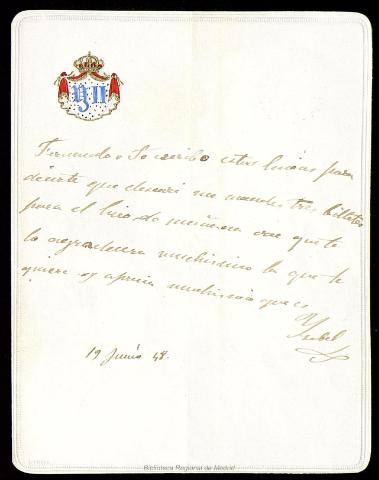 YII
Fernando: Te escribo estas lineas para
decirte que me mandes tres billetes
para el de mañana que te
lo agradecera muchissimo la que te
quiere y aprecia muchissimo que es
Ysabel
19 Junio 48.
Biblioteca Regional de Madrid